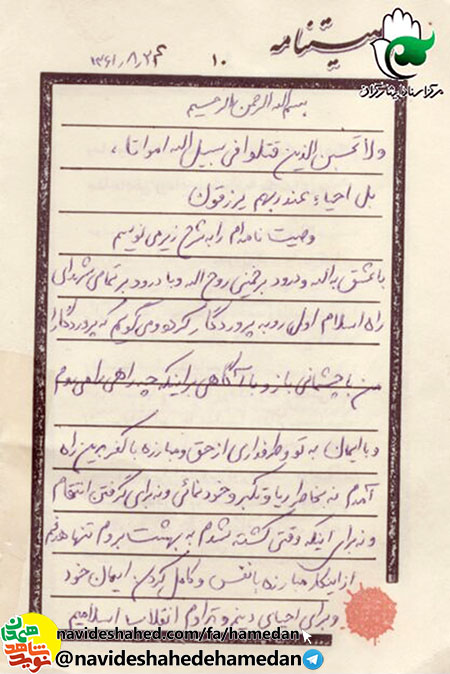 وصیتنامه
مرکز اسناد ایثارگران
۱۰
۱۳۶۱/۸/۲۴
بسم الله الرحمن الرحیم
ولا تحسبن الذین قتلوا فی سبیل الله امواتا،
بل احیاء عند ربهم یرزقون
وصیت نامه‌ام را به شرح زیر می نویسم
با عشق به الله و درود بر خمینی روح الله و با درود بر تمامی شهدای
راه اسلام اول رو به پروردگار کرده و می گویم که پروردگارا
من با چشمانی باز و با آگاهی بر اینکه چه راهی را می روم
و با ایمان به تو و طرفداری از حق و مبارزه با کفر بر این راه
آمدم نه بخاطر ریا و تکبر و خودنمائی و نه برای گرفتن انتقام
و نه برای اینکه وقتی کشته شدم به بهشت بروم تنها هدفم
از اینکار مبارزه با نفس و کامل کردن ایمان خود
و برای احیای دینم و تداوم انقلاب اسلامیم
نوید شاهد همدان
navideshahed.com/fa/hamedan
@navideshahedehamedan